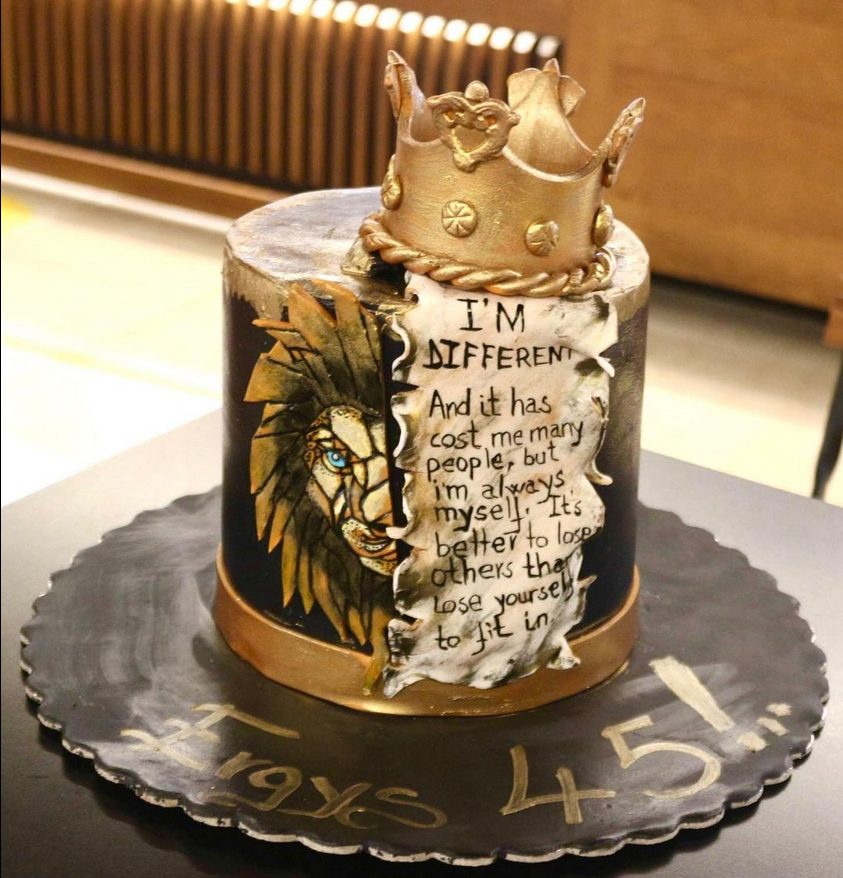 I'M
DIFFERENT
And it has
cost me many
people, but
i'm always
myself. It's
better to lose
others than
Lose yourself
to fit in.
45!...